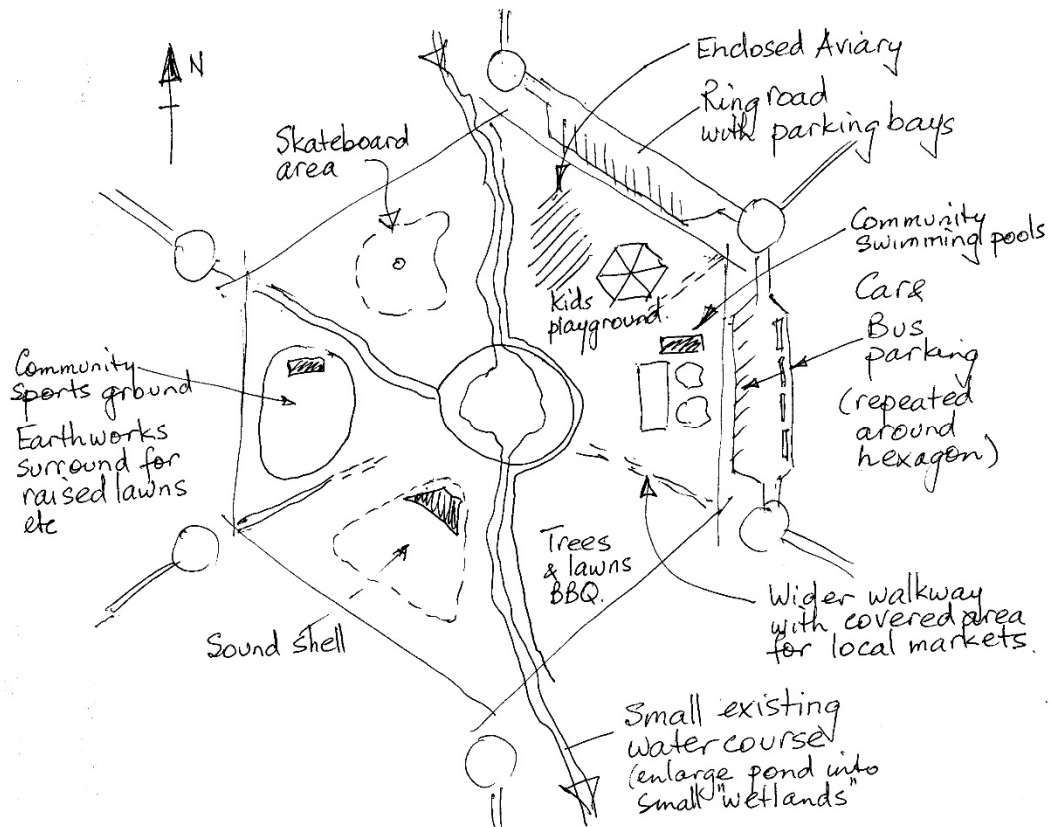 N
Enclosed Aviary
Ring road
with parking bays
Skateboard
area
Community
swimming pools
Kids
playground.
Car &
Bus
parking
(repeated
around
hexagon)
Community
sports ground
Earthworks
surround for
raised lawns
etc
Trees
& lawns
BBQ.
Sound shell
Wider walkway
with covered area
for local markets.
Small existing
water course
(enlarge pond into
small "wetlands"